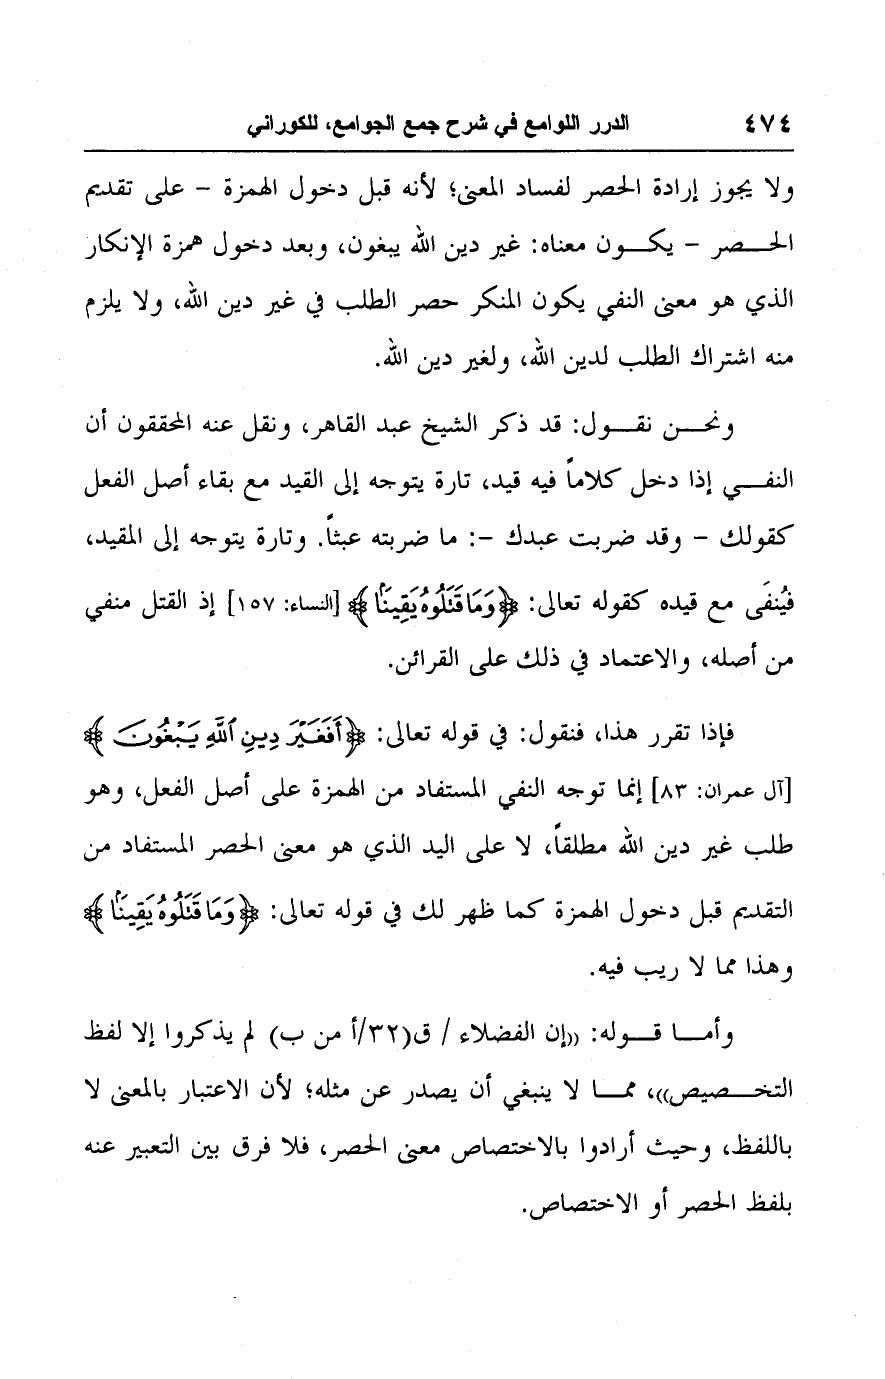 ٤٧٤ الدرر اللوامع في شرح جمع الجوامع، للكوراني
ولا يجوز إرادة الحصر لفساد المعنى؛ لأنه قبل دخول الهمزة – على تقديم
الحصر – يكون معناه: غير دين الله يبغون، وبعد دخول همزة الإنكار
الذي هو معنى النفي يكون المنكر حصر الطلب في غير دين الله، ولا يلزم
منه اشتراك الطلب لدين الله، ولغير دين الله.
ونحن نقول: قد ذكر الشيخ عبد القاهر، ونقل عنه المحققون أن
النفي إذا دخل كلاماً فيه قيد، تارة يتوجه إلى القيد مع بقاء أصل الفعل
كقولك – وقد ضربت عبدك –: ما ضربته عبثاً. وتارة يتوجه إلى المقيد،
فيُنفَى مع قيده كقوله تعالى: ﴿وَمَا قَتَلُوهُ يَقِينًا﴾ [النساء: ١٥٧] إذ القتل منفي
من أصله، والاعتماد في ذلك على القرائن.
فإذا تقرر هذا، فنقول: في قوله تعالى: ﴿أَفَغَيْرَ دِينِ ٱللَّهِ يَبْغُونَ﴾
[آل عمران: ٨٣] إنما توجه النفي المستفاد من الهمزة على أصل الفعل، وهو
طلب غير دين الله مطلقاً، لا على اليد الذي هو معنى الحصر المستفاد من
التقديم قبل دخول الهمزة كما ظهر لك في قوله تعالى: ﴿وَمَا قَتَلُوهُ يَقِينًا﴾
وهذا مما لا ريب فيه.
وأما قوله: ((إن الفضلاء / ق(٣٢/أ من ب) لم يذكروا إلا لفظ
التخصيص))، مما لا ينبغي أن يصدر عن مثله؛ لأن الاعتبار بالمعنى لا
باللفظ، وحيث أرادوا بالاختصاص معنى الحصر، فلا فرق بين التعبير عنه
بلفظ الحصر أو الاختصاص.